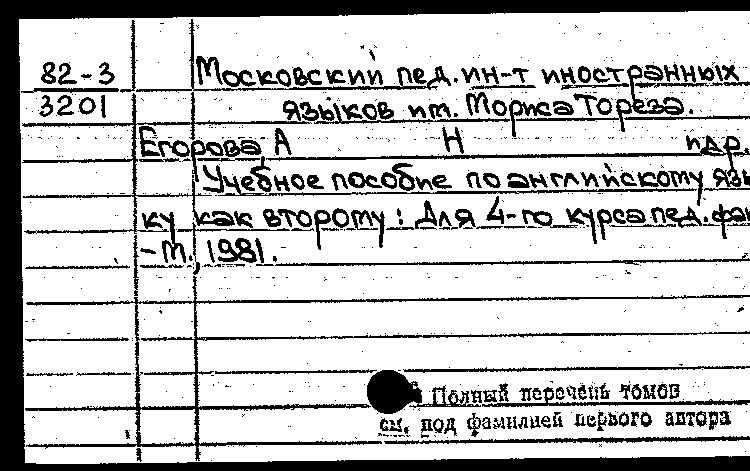 82-3
3201
Московский пед. ин-т иностранных
языков им. Мориса Тореза.
Егорова, А Н идр.
Учебное пособие по английскому язы
ку как второму: Для 4-го курса пед. фак
-т., 1981.
Полный перечень томов
см. под фамилией первого автора